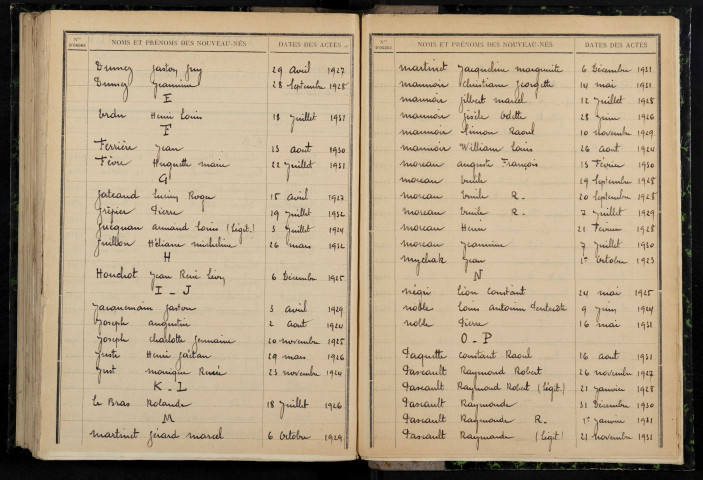 Nos D'ORDRE NOMS ET PRÉNOMS DES NOUVEAU-NÉS DATES DES ACTES
Dumez Gaston Guy 29 Avril 1927
Dumez Jeannine 28 Septembre 1928
E
Henri Louis 18 Juillet 1931
F
Ferrière Jean 13 août 1930
Fèvre Huguette marie 22 Juillet 1931
G
Lucien Roger 15 Avril 1927
Grépier Pierre 19 Juillet 1932
armand Louis (légit.) 3 Juillet 1924
Guillon Hélianne micheline 26 mars 1932
H
Houchot Jean René Lévy 6 Décembre 1925
I - J
Jacquemain Gaston 3 avril 1929
Joseph augustin 2 août 1924
Joseph charlotte Germaine 20 novembre 1925
Juste Henri Gaëtan 29 mars 1926
Just monique Renée 23 novembre 1924
K - L
Le Bras Rolande 18 Juillet 1926
M
martinet Gérard marcel 6 Octobre 1929
Nos D'ORDRE NOMS ET PRÉNOMS DES NOUVEAU-NÉS DATES DES ACTES
martinet Jacqueline marguerite 6 Décembre 1931
maunoir christiane Georgette 14 mai 1931
maunoir Gilbert marcel 12 Juillet 1928
maunoir Gisèle Odette 28 Juin 1926
maunoir Simon Raoul 10 novembre 1929
maunoir William Louis 26 août 1924
moreau auguste François 13 Février 1930
moreau Emile 19 Septembre 1928
moreau Emile R. 20 Septembre 1928
moreau Emile R. 7 Juillet 1929
moreau Henri 21 Février 1928
moreau Jeannine 7 Juillet 1930
mychak Jean 1er Octobre 1923
N
négri Léon Constant 24 mai 1925
noble Louis antonin 9 Juin 1924
noble Pierre 16 mai 1931
O - P
Paquette Constant Raoul 16 août 1931
Pascault Raymond Robert 26 novembre 1927
Pascault Raymond Robert (légit.) 21 Janvier 1928
Pascault Raymonde 31 Décembre 1930
Pascault Raymonde R. 1er Janvier 1931
Pascault Raymonde (légit) 21 novembre 1931